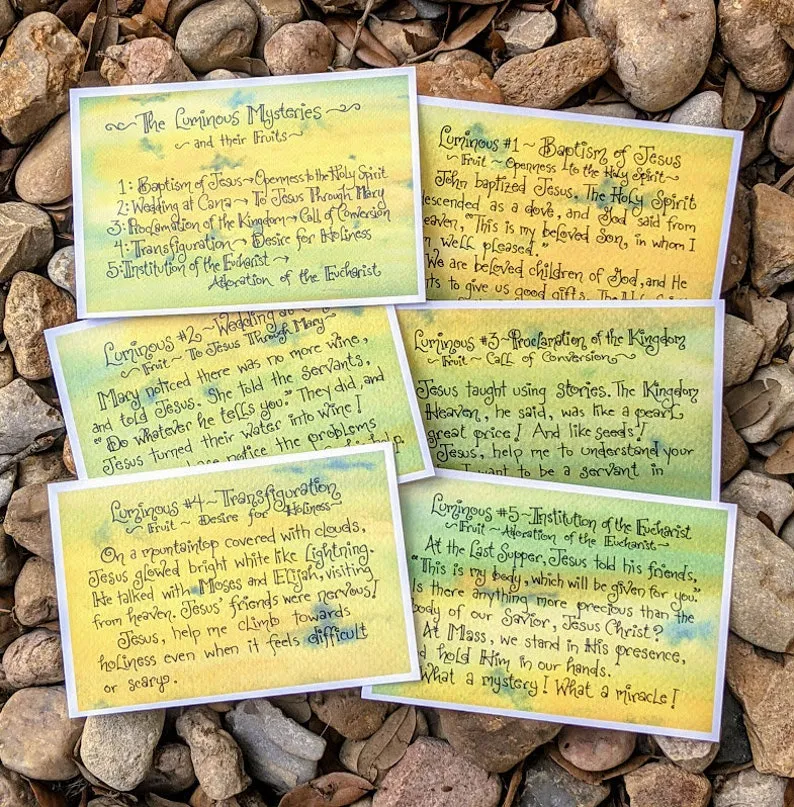 The Luminous Mysteries
~ and their Fruits ~
1: Baptism of Jesus → Openness to the Holy Spirit
2: Wedding at Cana → To Jesus Through Mary
3: Proclamation of the Kingdom → Call of Conversion
4: Transfiguration → Desire for Holiness
5: Institution of the Eucharist →
Adoration of the Eucharist
Luminous #1 ~ Baptism of Jesus
~ Fruit ~ Openness to the Holy Spirit ~
John baptized Jesus. The Holy Spirit
descended as a dove, and God said from
heaven, "This is my beloved Son, in whom I
well pleased."
We are beloved children of God, and He
to give us good gifts. The
Luminous #2 ~ Wedding at
~ Fruit ~ To Jesus Through Mary ~
Mary noticed there was no more wine,
and told Jesus. She told the servants,
"Do whatever he tells you." They did, and
Jesus turned their water into wine!
notice the problems
Luminous #3 ~ Proclamation of the Kingdom
~ Fruit ~ Call of Conversion ~
Jesus taught using stories. The Kingdom
Heaven, he said, was like a pearl
great price! And like seeds!
Jesus, help me to understand your
I want to be a servant in
Luminous #4 ~ Transfiguration
~ Fruit ~ Desire for Holiness ~
On a mountaintop covered with clouds,
Jesus glowed bright white like lightning.
He talked with Moses and Elijah, visiting
from heaven. Jesus' friends were nervous!
Jesus, help me climb towards
holiness even when it feels difficult
or scary.
Luminous #5 ~ Institution of the Eucharist
~ Fruit ~ Adoration of the Eucharist ~
At the Last Supper, Jesus told his friends,
"This is my body, which will be given for you."
Is there anything more precious than the
body of our Savior, Jesus Christ?
At Mass, we stand in His presence,
hold Him in our hands.
What a mystery! What a miracle!